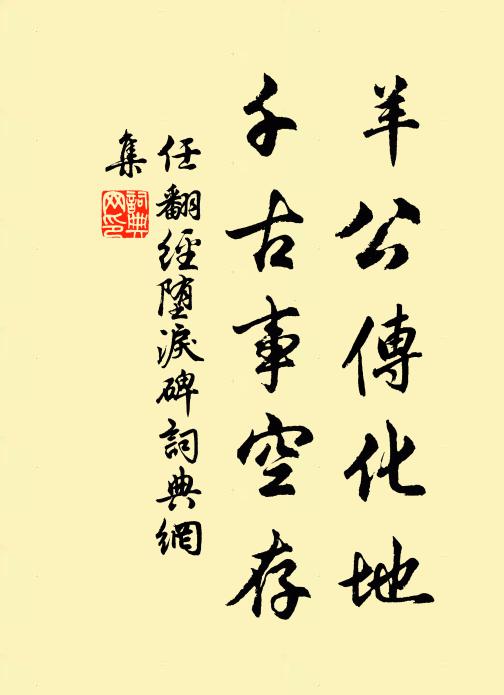 羊公傳化地
千古事空存
任翻經墮淚碑詞典網
集
詞典
网印